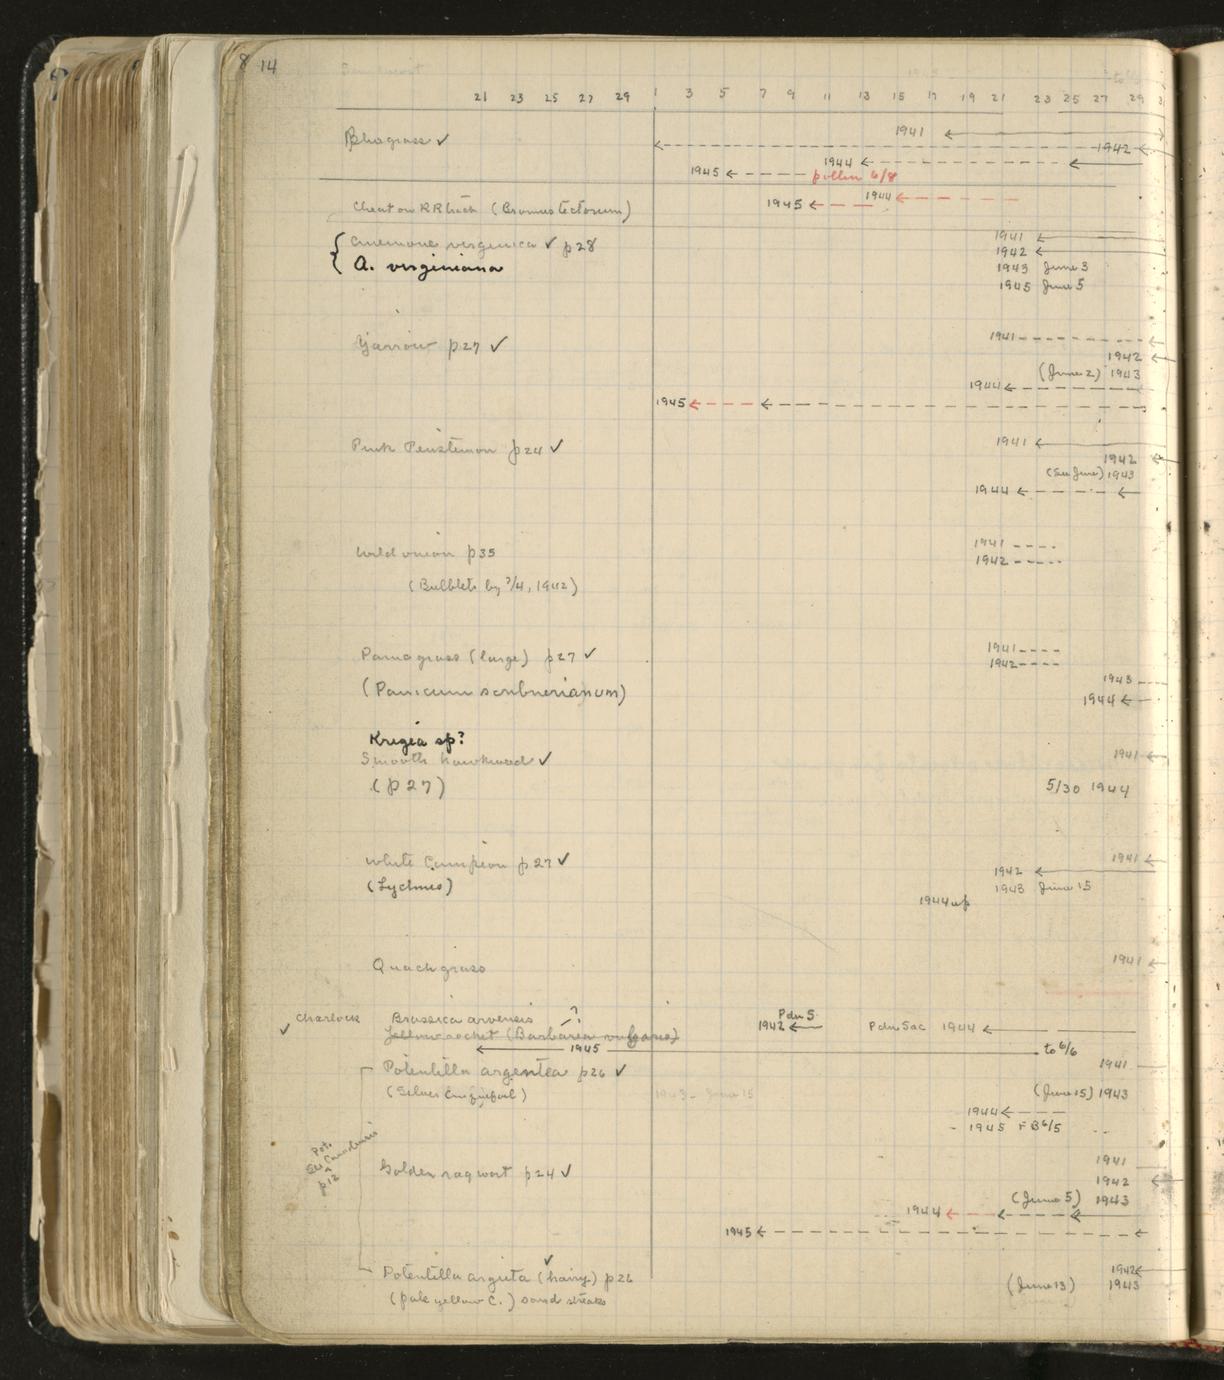 8 14
21 23 25 27 29 1 3 5 7 9 11 13 15 17 19 21 23 25 27 29
1941
Bluegrass ✓
1942
1944
1945 pollen 6/8
1944
Cheat on RR track (Bromus tectorum) 1945
1941
Anemone virginica ✓ p28
1942
A. virginiana
1943 June 3
1945 June 5
1941
Yarrow p27 ✓
1942
(June 2) 1943
1944
1945
1941
Pink Penstemon p24 ✓
1942
(See June) 1943
1944
1941
Wild onion p35
1942
(Bulblets by 7/4, 1942)
1941
Panic grass (large) p27 ✓
1942
1943
(Panicum scribnerianum)
1944
Krigia sp?
Smooth hawkweed ✓ 1941
(p27) 5/30 1944
White Campion p27 ✓ 1941
1942
(Lychnis) 1943 June 15
1944 up
Quackgrass 1941
Pdn S
✓ Charlock Brassica arvensis ?
1942 Pdn Sac 1944
Yellow rocket (Barbarea vulgaris)
1945 to 6/6
Potentilla argentea p26 ✓ 1941
(Silver Cinquefoil) 1943 - June 15 (June 15) 1943
1944
1945 FB 6/5
Pot.
See Canadensis
p12
1941
Golden ragwort p24 ✓
1942
(June 5) 1943
1944
1945
✓
Potentilla arguta (hairy) p26 1942
(June 13) 1943
(pale yellow C.) sand streaks